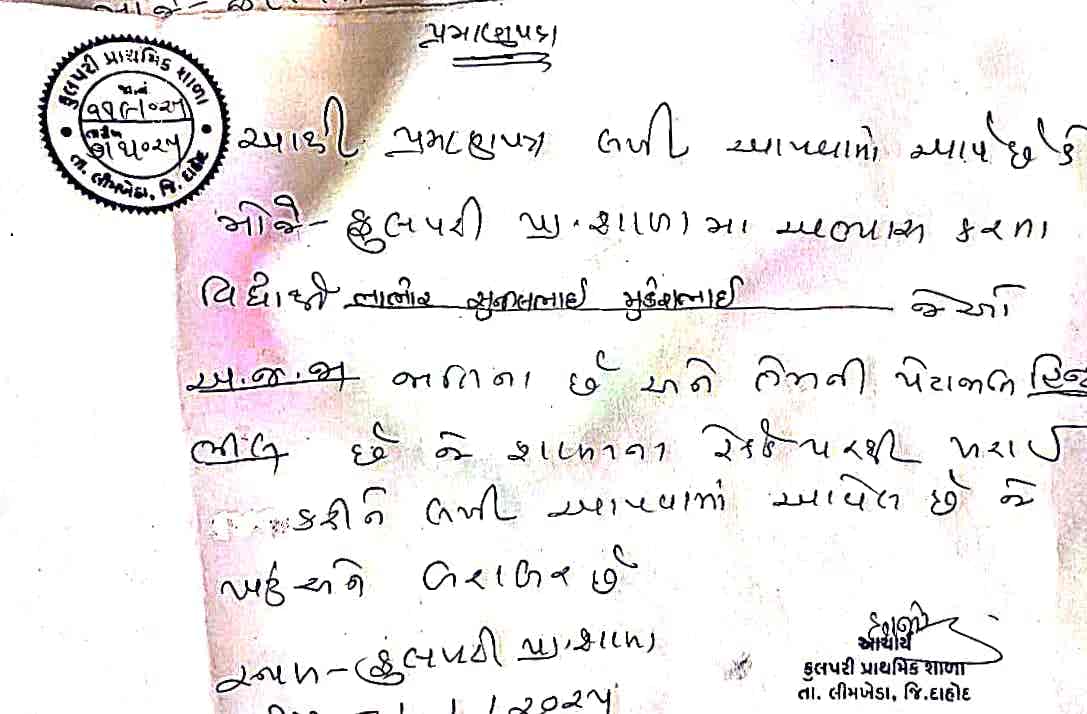 પ્રમાણપત્ર
ફુલપરી પ્રાથમિક શાળા
જા.નં.
તારીખ
તા. લીમખેડા, જિ. દાહોદ
આથી પ્રમાણપત્ર લખી આપવામાં આવે છે કે
મોજે - ફુલપરી પ્રા. શાળામા અભ્યાસ કરતા
વિદ્યાર્થી મુકેશભાઈ જેઓ
અ.જ.જા જાતિના છે અને તેમની પેટાજાતિ હિન્દુ
ભીલ છે જે શાળાના રેકર્ડ પરથી ખરાઈ
કરીને લખી આપવામાં આવેલ છે જે
ખરું અને બરાબર છે
સ્થળ - ફુલપરી પ્રા. શાળા
આચાર્ય
ફુલપરી પ્રાથમિક શાળા
તા. લીમખેડા, જિ.દાહોદ